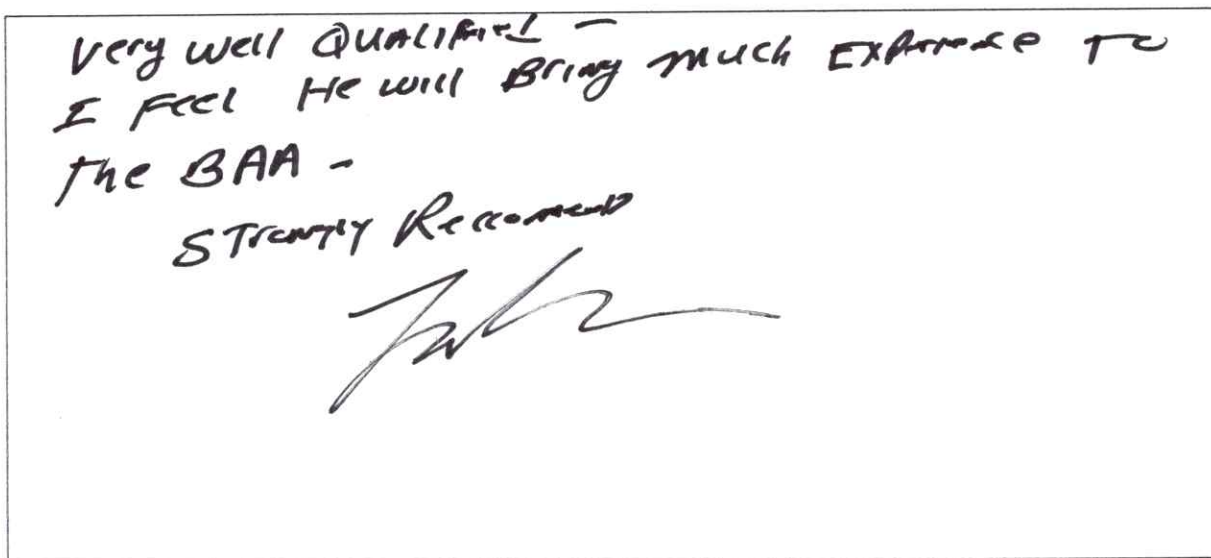 Very well Qualified –
I Feel He will Bring much Experience to
the BAA –
Strongly Reccomend